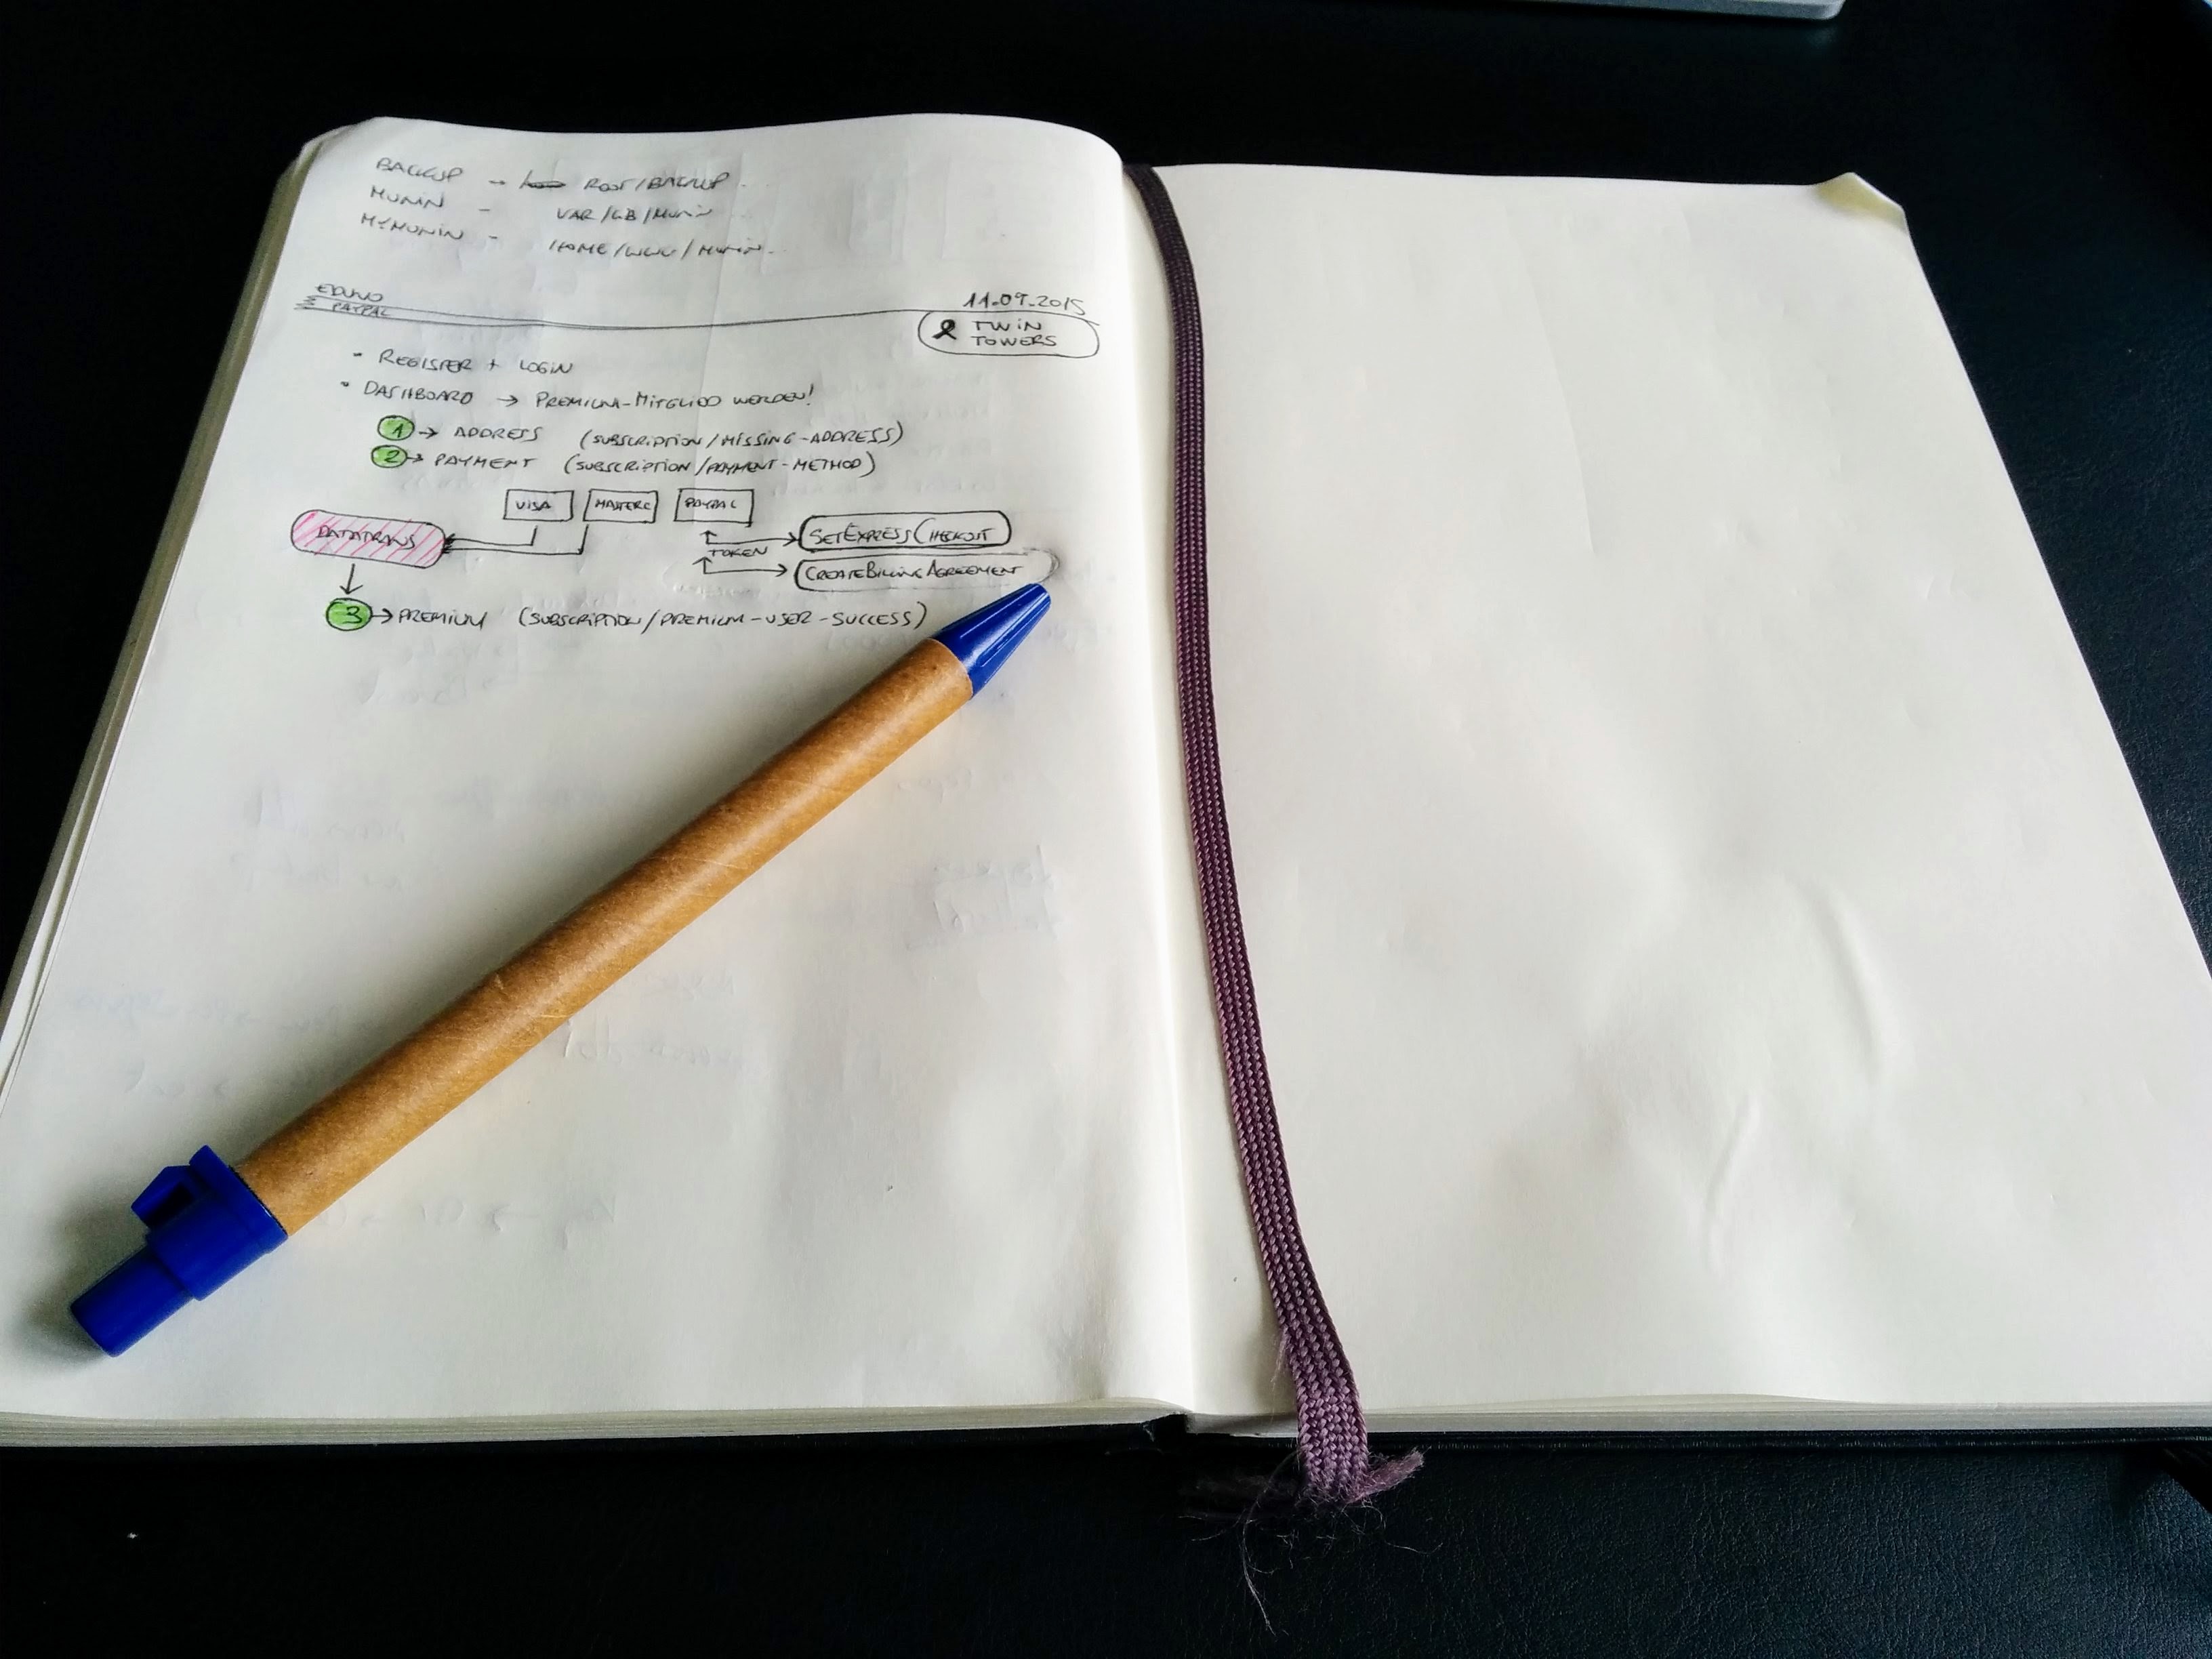 BACKUP → ROOT/BACKUP.
MUNIN - VAR/LIB/MUNIN
MYMUNIN - HOME/WWW/MUNIN.
11.09.2015
PAYPAL
TWIN
TOWERS
• REGISTER + LOGIN
• DASHBOARD → PREMIUM-MITGLIED WERDEN!
1 → ADDRESS (SUBSCRIPTION/MISSING-ADDRESS)
2 → PAYMENT (SUBSCRIPTION/PAYMENT-METHOD)
VISA MASTERC PAYPAL
DATATRANS SETEXPRESSCHECKOUT
TOKEN
CREATEBILLINGAGREEMENT
3 → PREMIUM (SUBSCRIPTION/PREMIUM-USER-SUCCESS)